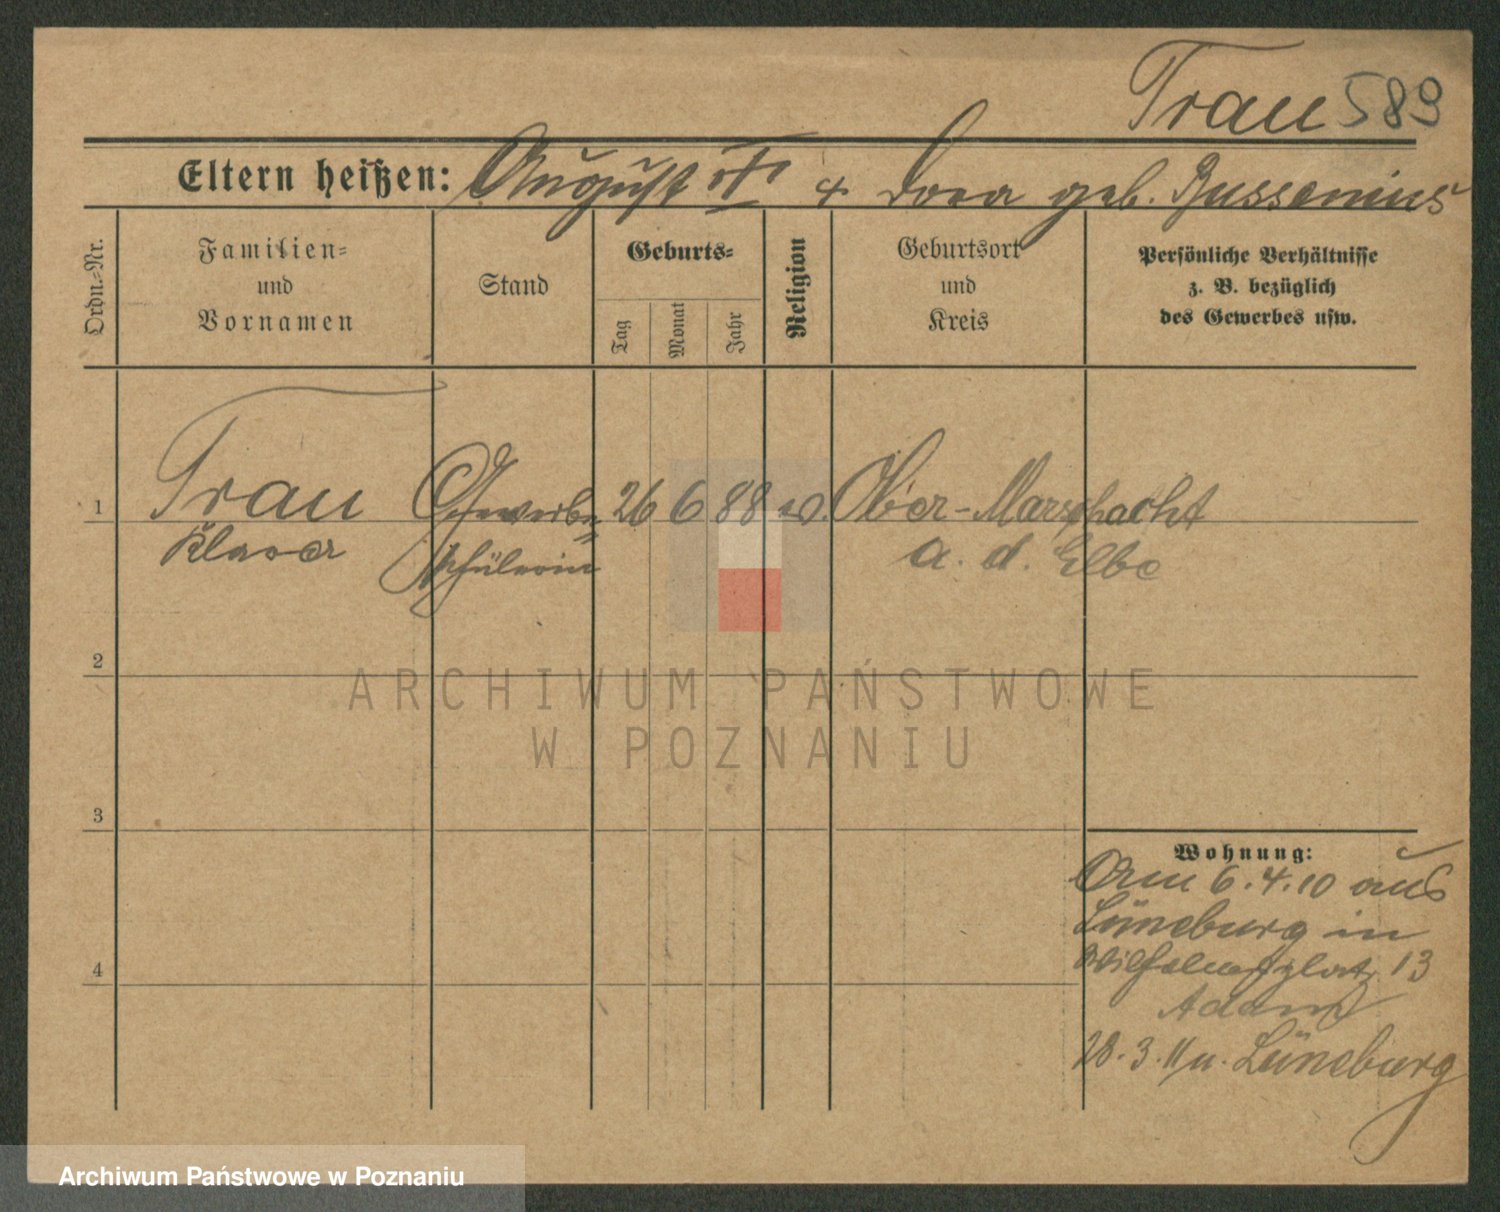 Trau 589
Eltern heißen: August Tr. & Dora geb. Bussenius
Ordn.-Nr.
Familien- und Vornamen
Stand
Geburts-
Tag
Monat
Jahr
Religion
Geburtsort und Kreis
Persönliche Verhältnisse
z. B. bezüglich
des Gewerbes usw.
1 Trau Gewerbe= 26 6 88 ev. Ober-Marschacht
Klara schülerin a. d. Elbe
2
ARCHIWUM PAŃSTWOWE
W POZNANIU
3
Wohnung:
Am 6.4.10 aus
Lüneburg in
4
Wilhelmsplatz 13
Adam
28.3.11 n. Lüneburg
Archiwum Państwowe w Poznaniu